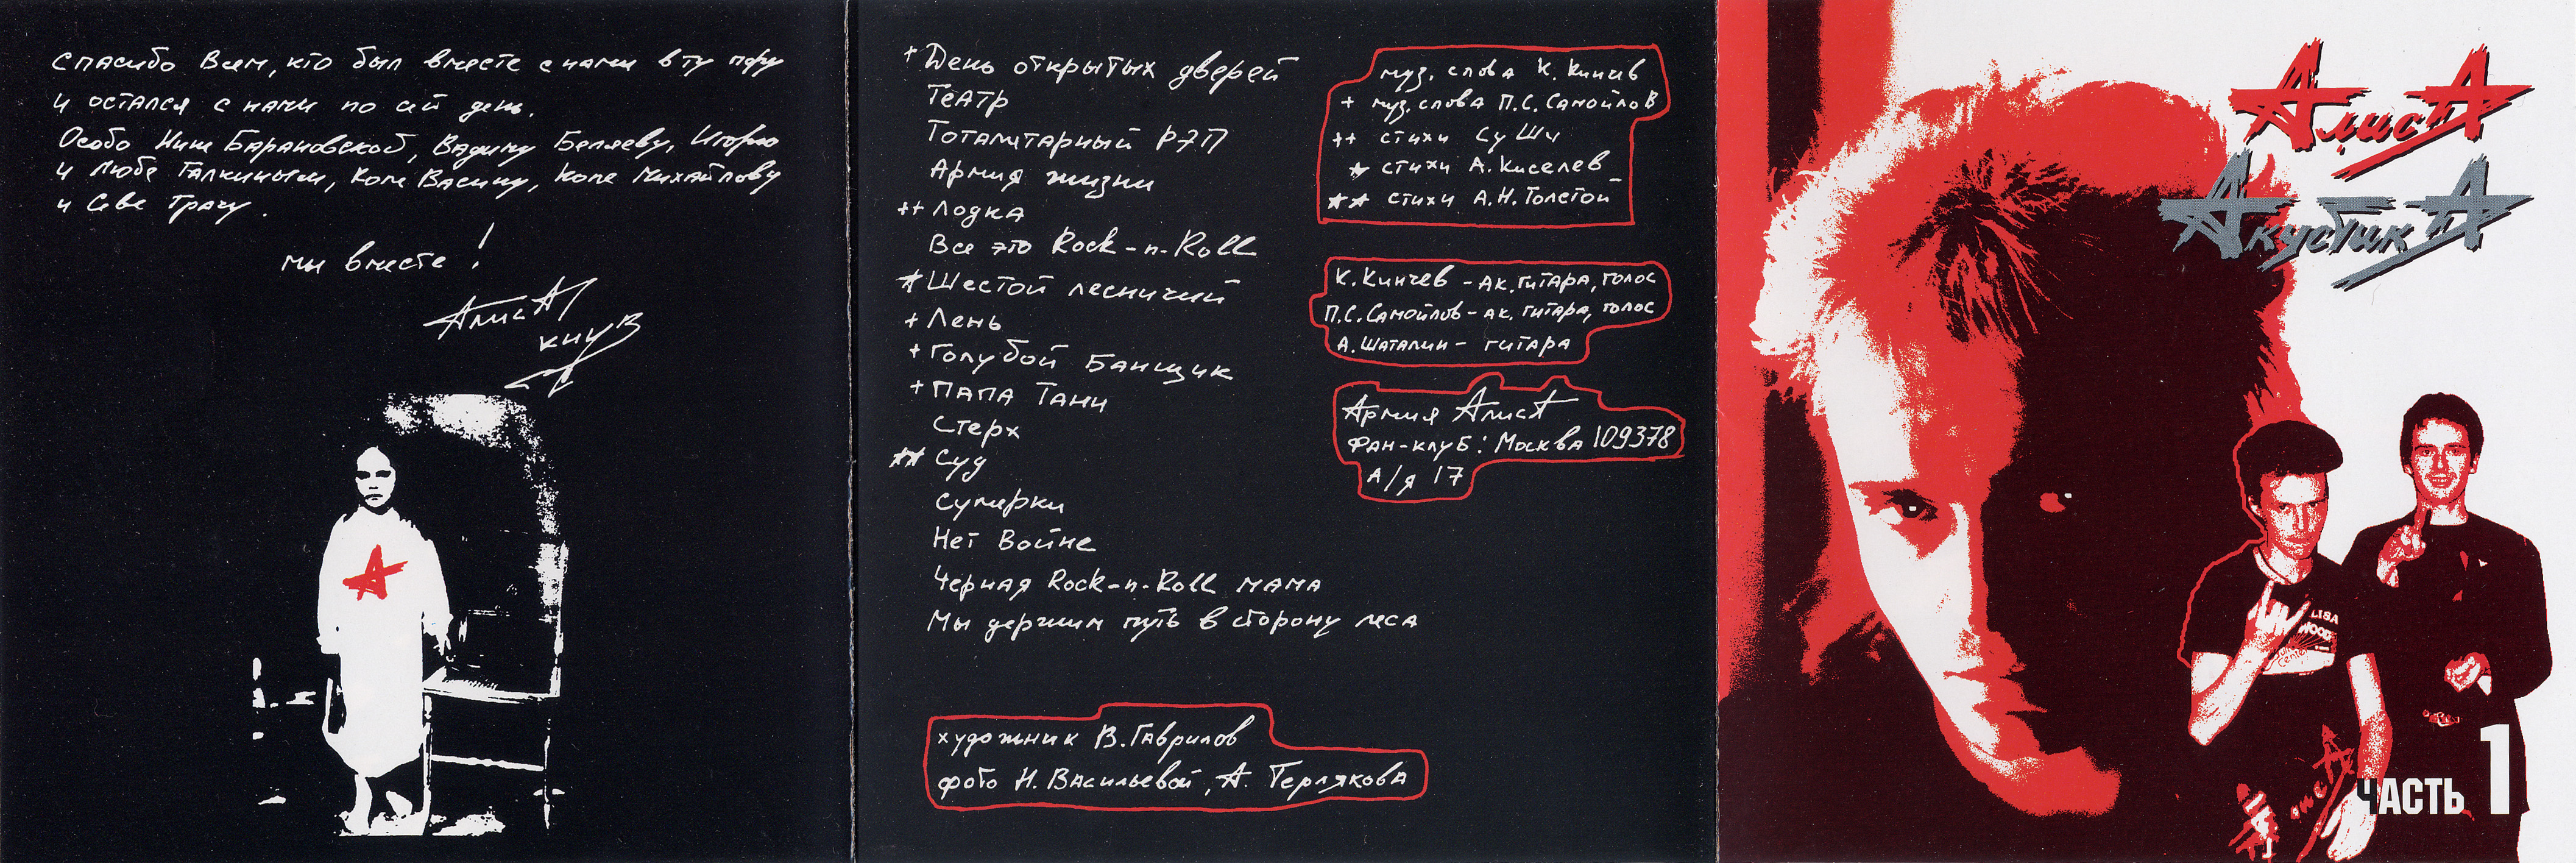 Спасибо Всем, кто был вместе с нами в ту пору
и остался с нами по сей день.
Особо Нине Барановской, Вадиму Беляеву, Игорю
и Любе Галкиным, Коле Васину, Коле Михайлову
и Севе Грачу.
мы вместе!
АлисА
КИНЧЕВ
+ День открытых дверей
Театр
Тоталитарный РЭП
Армия жизни
++ Лодка
Все это Rock-n-Roll
★ Шестой лесничий
+ Лень
+ Голубой Банщик
+ ПАПА ТАНИ
Стерх
★★ Суд
Сумерки
Нет Войне
Черная Rock-n-Roll мама
Мы держим путь в сторону леса
муз. слова К. Кинчев
+ муз. слова П.С. Самойлов
++ стихи Су Ши
★ стихи А. Киселев
★★ стихи А.Н. Толстой
К. Кинчев - ак. гитара, голос
П.С. Самойлов - ак. гитара, голос
А. Шаталин - гитара
Армия АлисА
Фан-клуб: Москва 109378
А/Я 17
художник В. Гаврилов
фото Н. Васильевой, А. Терлякова
АлисА
АкустикА
LISA
WOOD
Center
АлисА
ЧАСТЬ 1